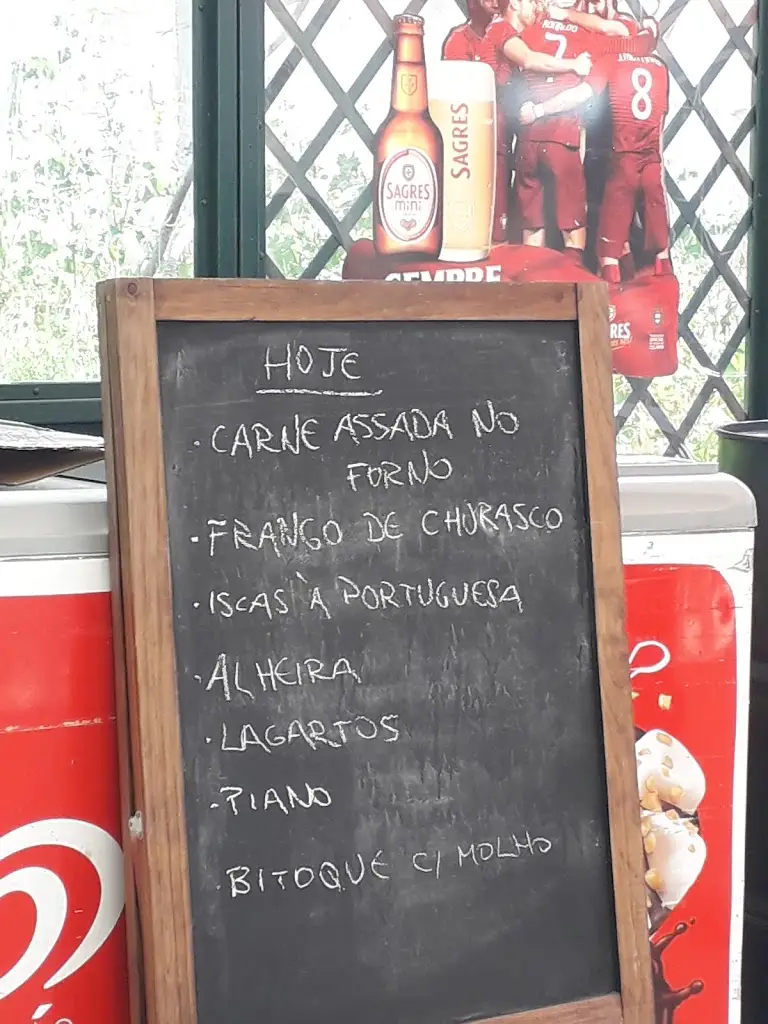 RONALDO
7
8
SAGRES
SAGRES
mini
SEMPRE
RES
HOJE
· CARNE ASSADA NO
FORNO
· FRANGO DE CHURASCO
· ISCAS À PORTUGUESA
· ALHEIRA
· LAGARTOS
· PIANO
BITOQUE C/ MOLHO